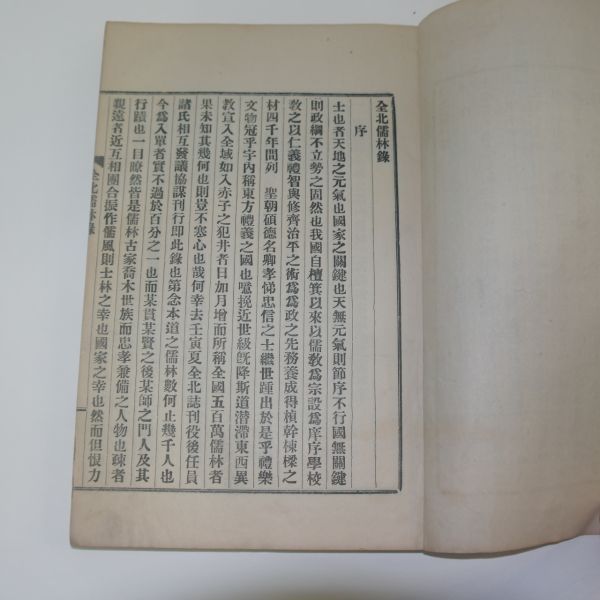 全北儒林錄
序
士也者天地之元氣也國家之關鍵也天無元氣則節序不行國無關鍵
則政綱不立勢之固然也我國自檀箕以來以儒教爲宗設爲庠序學校
教之以仁義禮智與修齊治平之術爲爲政之先務養成得楨幹棟樑之
材四千年間列 聖朝碩德名卿孝悌忠信之士繼世踵出於是乎禮樂
文物冠乎宇內稱東方禮義之國也噫挽近世級旣降斯道潛滯東西異
教宣入全域如入赤子之犯井者日加月增而所稱全國五百萬儒林者
果未知其幾何也則豈不寒心也哉何幸去壬寅夏全北誌刊役後任員
諸氏相互發議協謀刊行即此錄也第念本道之儒林數何止幾千人也
今爲入單者實不過於百分之一也而某貫某賢之後某師之門人及其
行蹟也一目瞭然皆是儒林古家喬木世族而忠孝兼備之人物也疎者
親遠者近互相團合振作儒風則士林之幸也國家之幸也然而但恨力
全北儒林錄